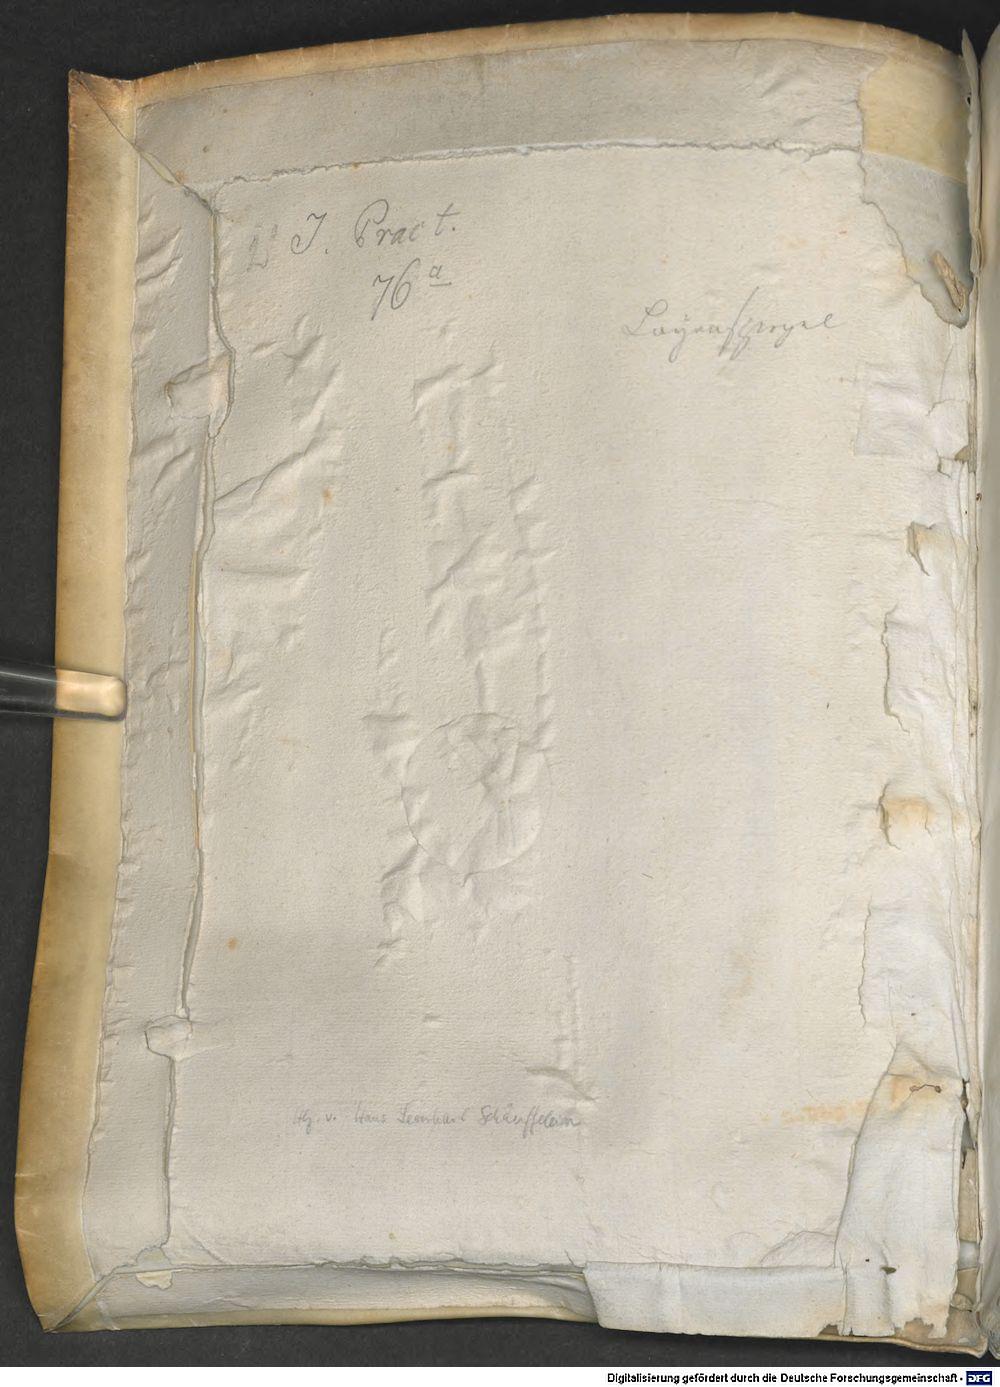 J. Pract.
76 a
Layenspiegel
v. Hans Leonhard Schäuffelein
Digitalisierung gefördert durch die Deutsche Forschungsgemeinschaft - DFG